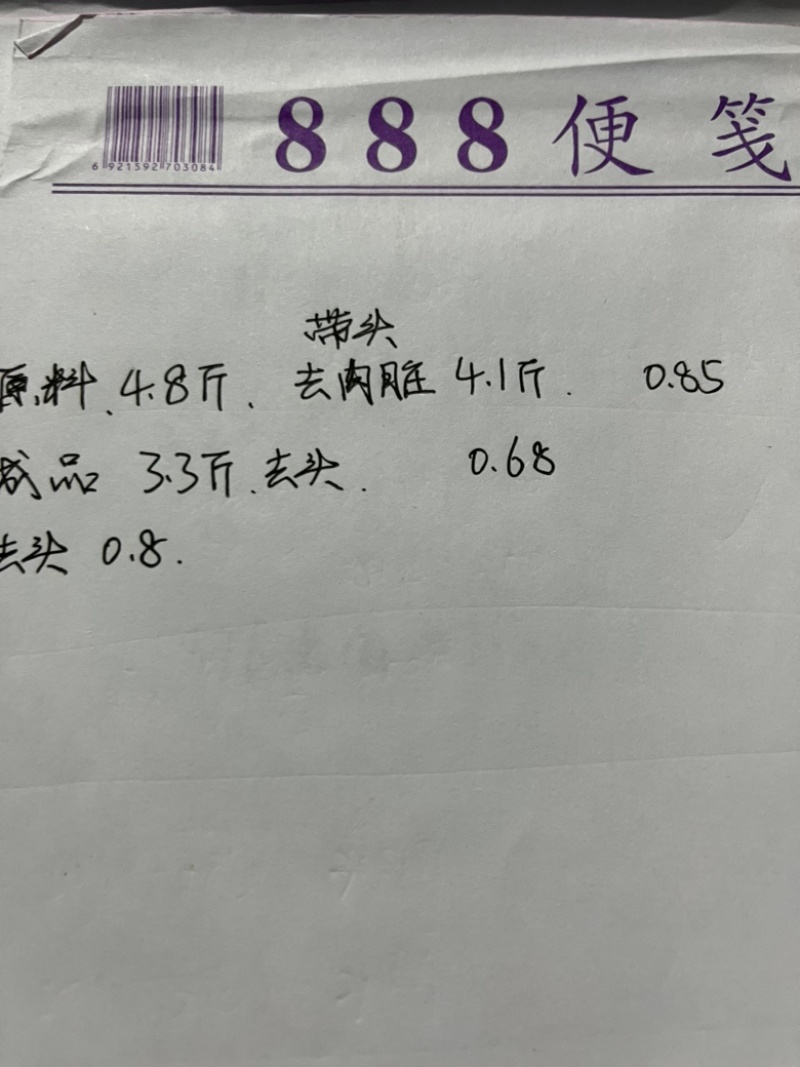 6 921592 703084
888便笺
带头
原料.4.8斤. 去内脏 4.1斤. 0.85
成品 3.3斤.去头. 0.68
去头 0.8.